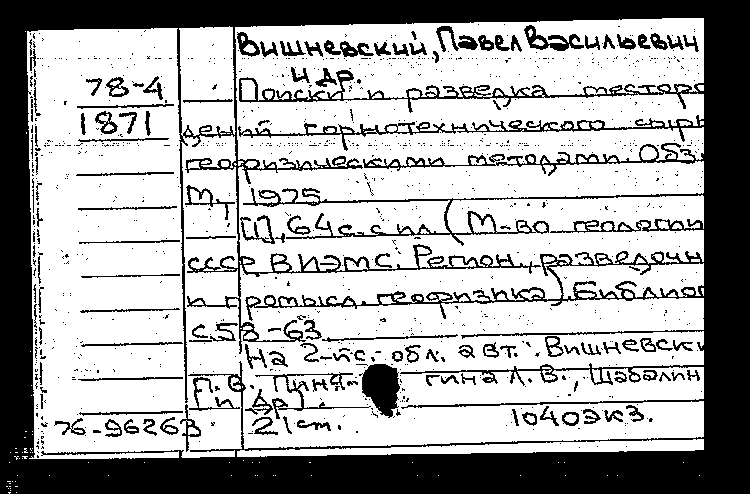 Вишневский, Павел Васильевич
и др.
78-4 Поиски и разведка месторо
1871 дений горнотехнического сырь
геофизическими методами. Обз.
М., 1975.
[1], 64 с. с ил. (М-во геологии
СССР. ВИЭМС. Регион., разведочн
и промысл. геофизика). Библиог
с. 58-63
На 2-й с. обл. авт.: Вишневски
П. В., Пиня- гина Л. В., Шабалин
и др.
76-96263 21 см. 1040 экз.